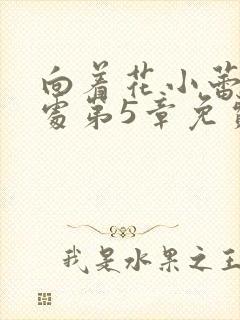 向着花小蕾
处第5章免
我是水果之王